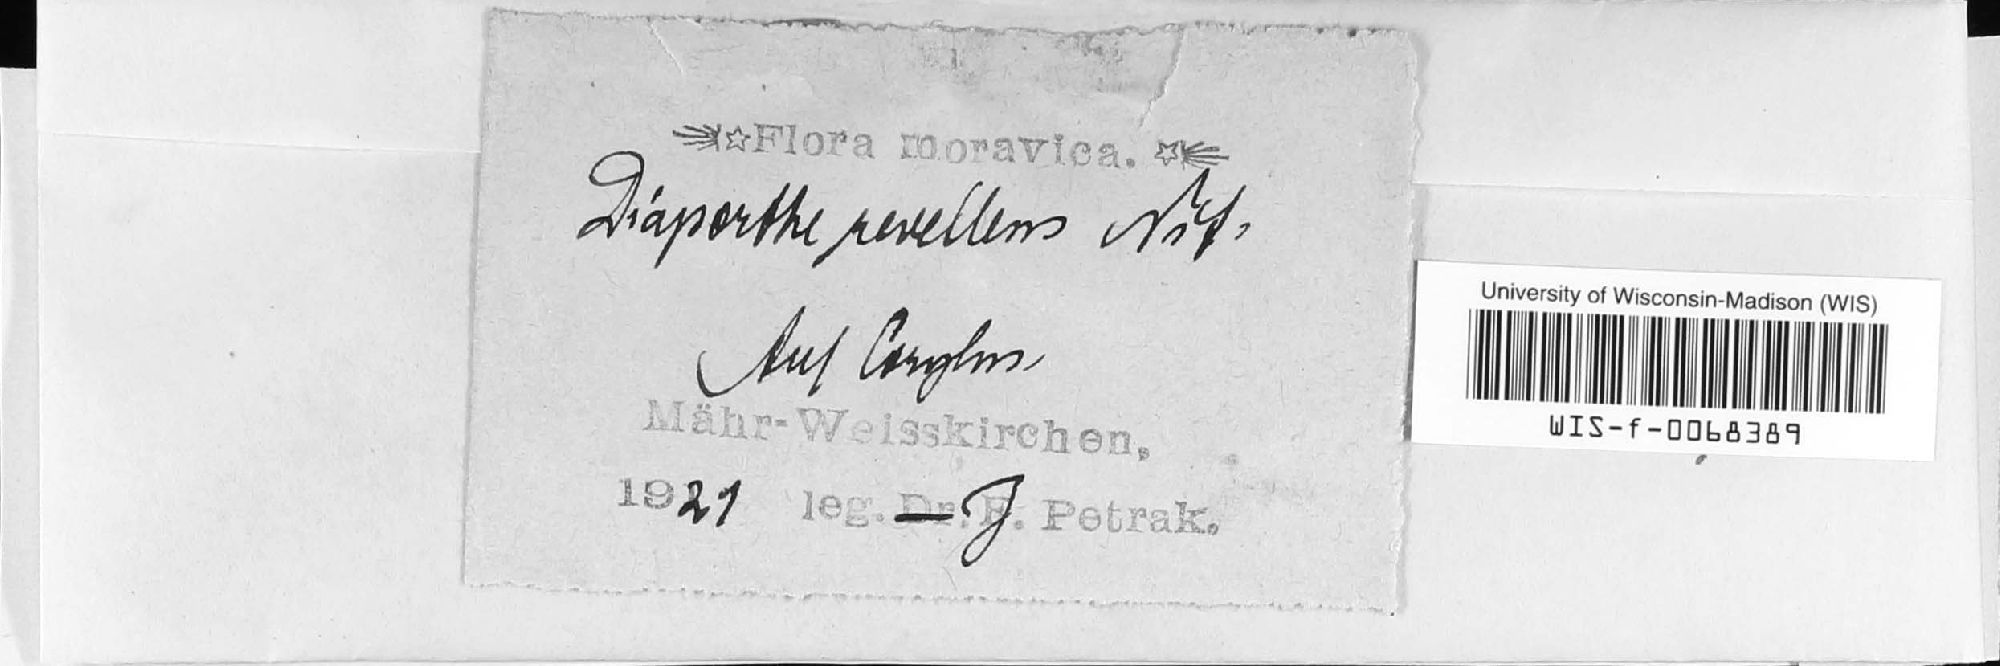 Flora moravica.
Diaporthe revellens Nit.
Auf Corylus
Mähr-Weisskirchen,
1921 leg. Dr. J. Petrak.
University of Wisconsin-Madison (WIS)
WIS-f-0068389